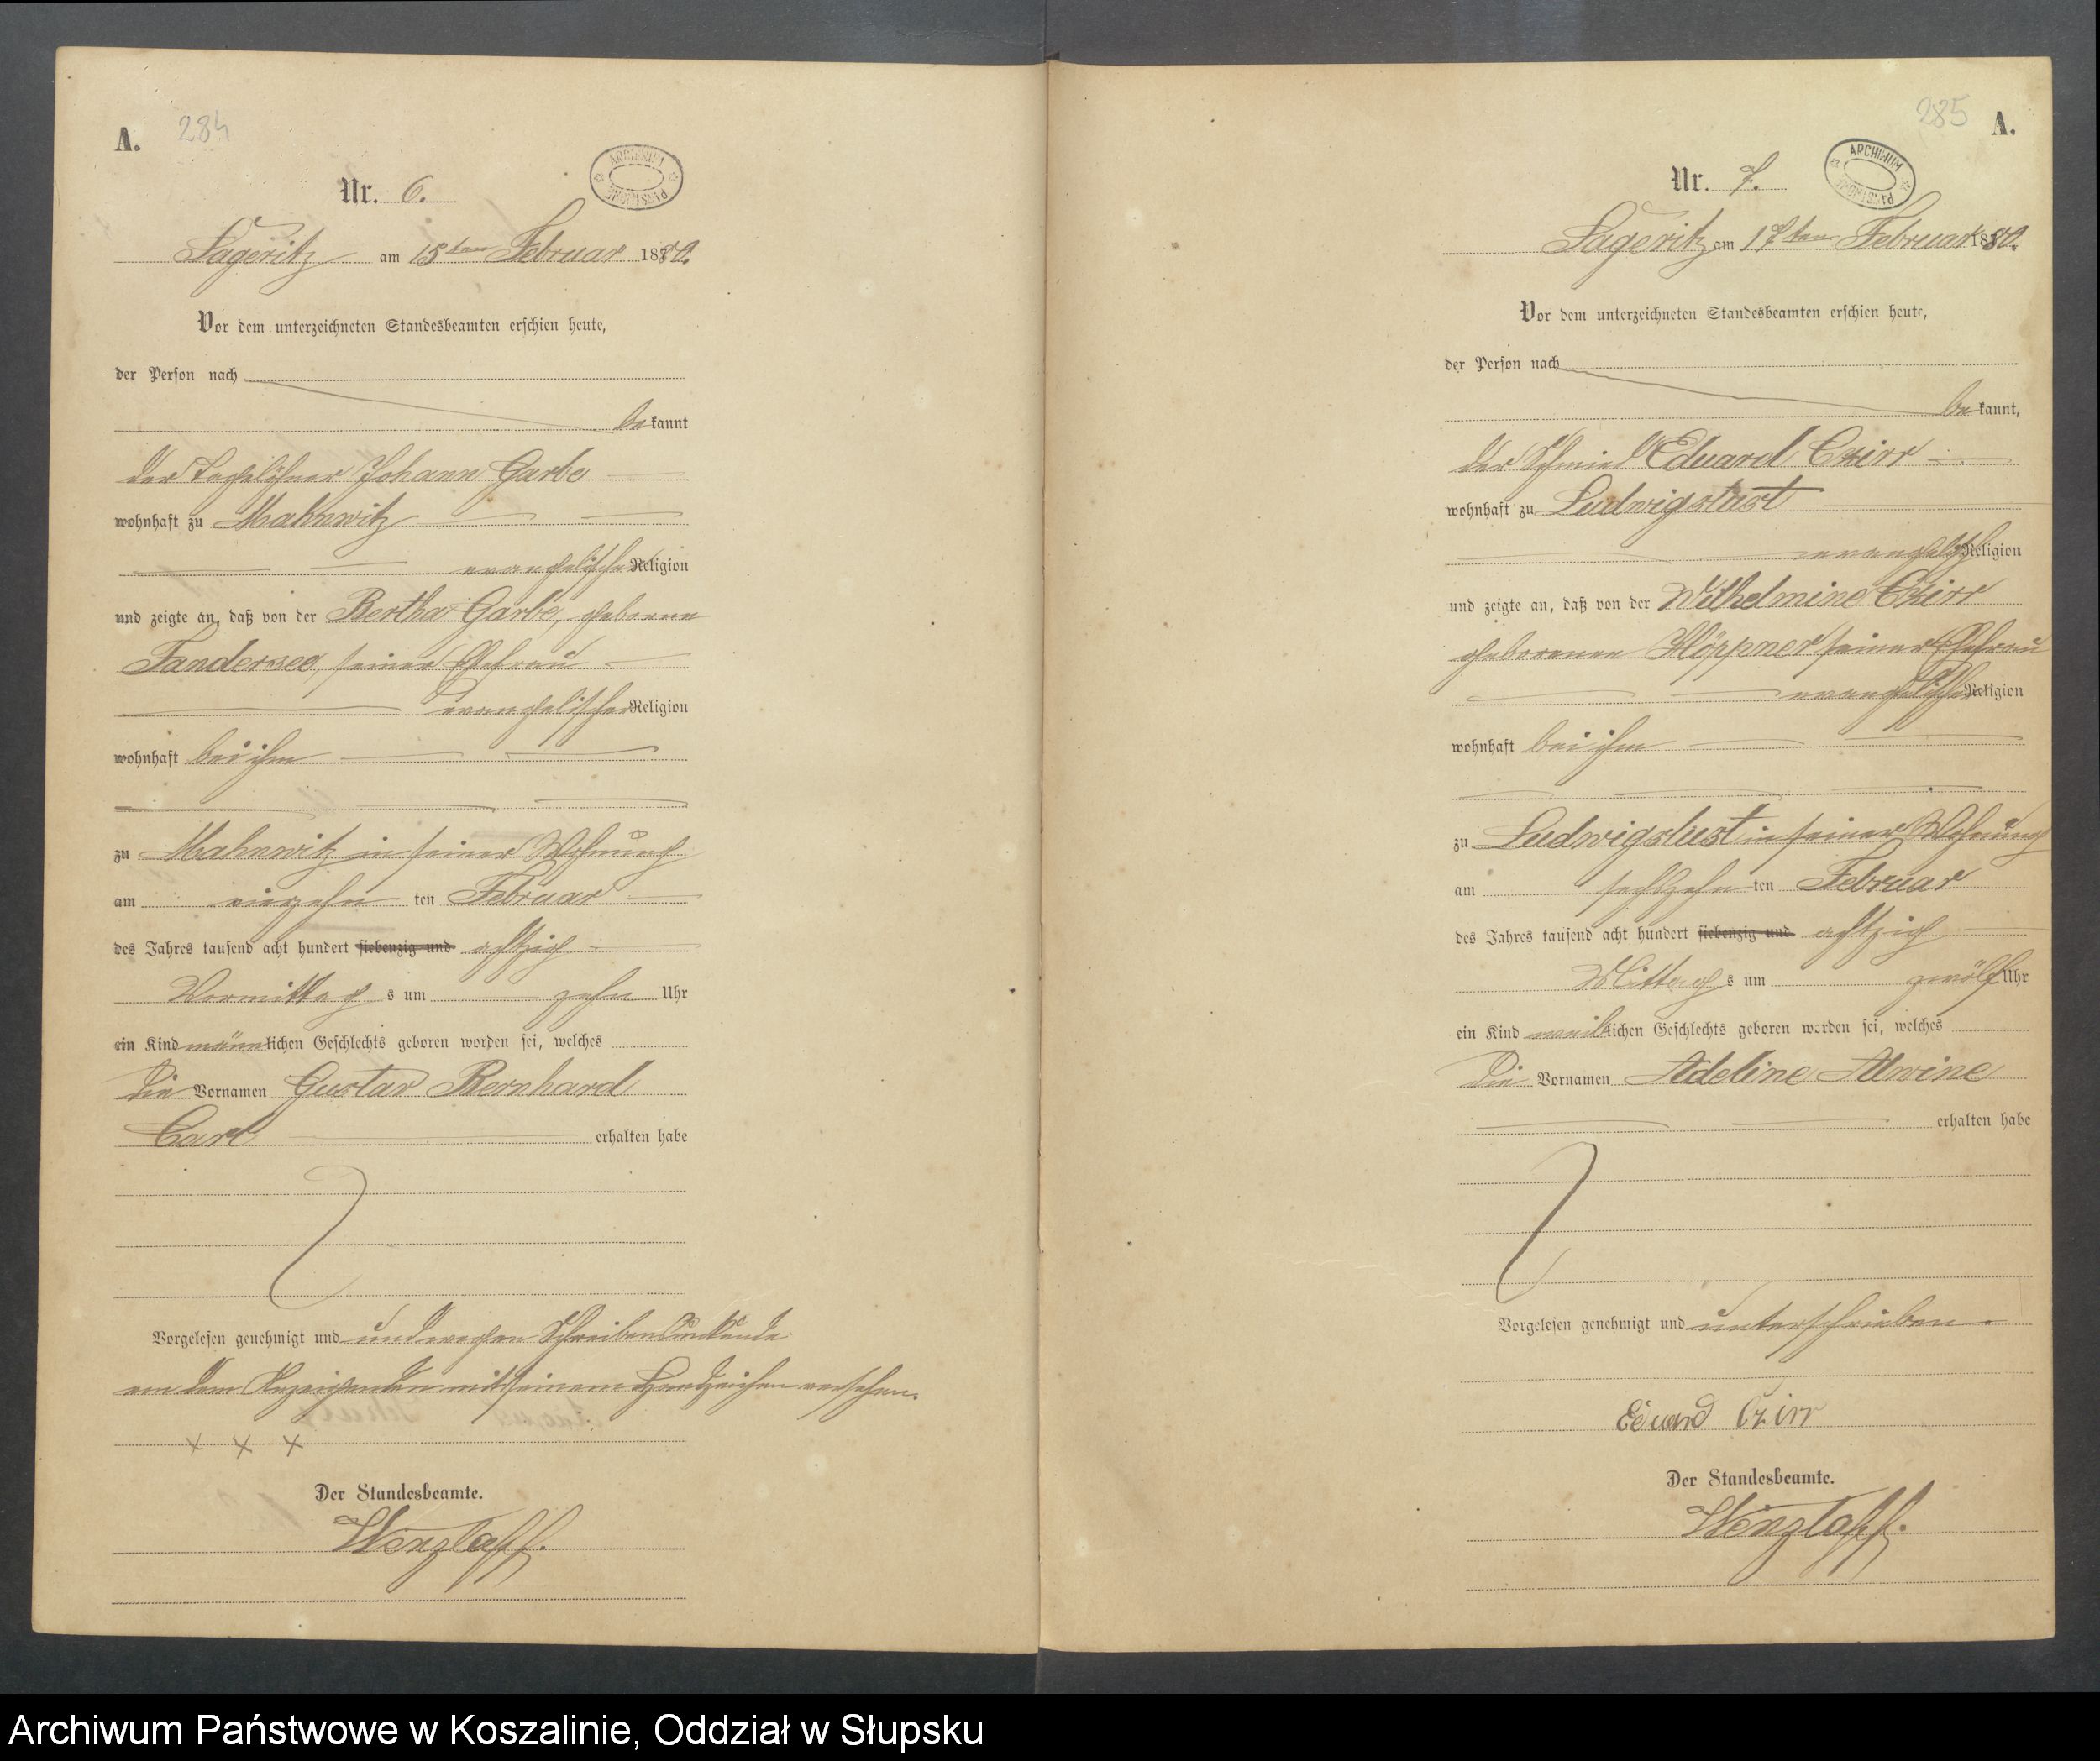 A.
284
Nr. 6.
Sageritz am 15ten Februar 1880.
Vor dem unterzeichneten Standesbeamten erschien heute,
der Person nach
bekannt
der Tagelöhner Johann Garbe
wohnhaft zu Mahnwitz
evangelischer Religion
und zeigte an, daß von der Bertha Garbe, geborene
seiner Ehefrau
evangelischer Religion
wohnhaft bei ihm
zu Mahnwitz in seiner Wohnung
am vierzehn ten Februar
des Jahres tausend acht hundert siebenzig und achtzig
Vormittag s um zehn Uhr
ein Kind männlichen Geschlechts geboren worden sei, welches
die Vornamen Gustav Bernhard
Carl erhalten habe
Vorgelesen genehmigt und und wegen Schreibensunkunde
von dem Anzeigenden mit seinem Handzeichen versehen.
x x x
Der Standesbeamte.
Wenzlaff.
285
A.
Nr. 7.
ARCHIWUM
PAŃSTWOWE
Sageritz am 17ten Februar 1880.
Vor dem unterzeichneten Standesbeamten erschien heute,
der Person nach
bekannt,
der Schmied Eduard Czirr
wohnhaft zu Ludwigslust
evangelischer Religion
und zeigte an, daß von der Wilhelmine Czirr
geborenen Klöppner seiner Ehefrau
evangelischer Religion
wohnhaft bei ihm
zu Ludwigslust in seiner Wohnung
am sechszehn ten Februar
des Jahres tausend acht hundert siebenzig und achtzig
Mittag s um zwölf Uhr
ein Kind weiblichen Geschlechts geboren worden sei, welches
die Vornamen Adeline Alwine
erhalten habe
Vorgelesen genehmigt und unterschrieben.
Eduard Czirr
Der Standesbeamte.
Wenzlaff.
Archiwum Państwowe w Koszalinie, Oddział w Słupsku